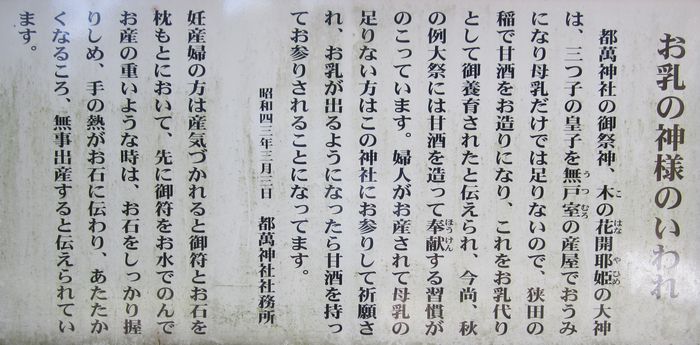 お乳の神様のいわれ
都萬神社の御祭神、木の花開耶姫の大神
は、三つ子の皇子を無戸室の産屋でおうみ
になり母乳だけでは足りないので、狭田の
稲で甘酒をお造りになり、これをお乳代り
として御養育されたと伝えられ、今尚、秋
の例大祭には甘酒を造って奉献する習慣が
のこっています。婦人がお産されて母乳の
足りない方はこの神社にお参りして祈願さ
れ、お乳が出るようになったら甘酒を持っ
てお参りされることになってます。
昭和四三年三月三日　都萬神社社務所
妊産婦の方は産気づかれると御符とお石を
枕もとにおいて、先に御符をお水でのんで
お産の重いような時は、お石をしっかり握
りしめ、手の熱がお石に伝わり、あたたか
くなるころ、無事出産すると伝えられてい
ます。